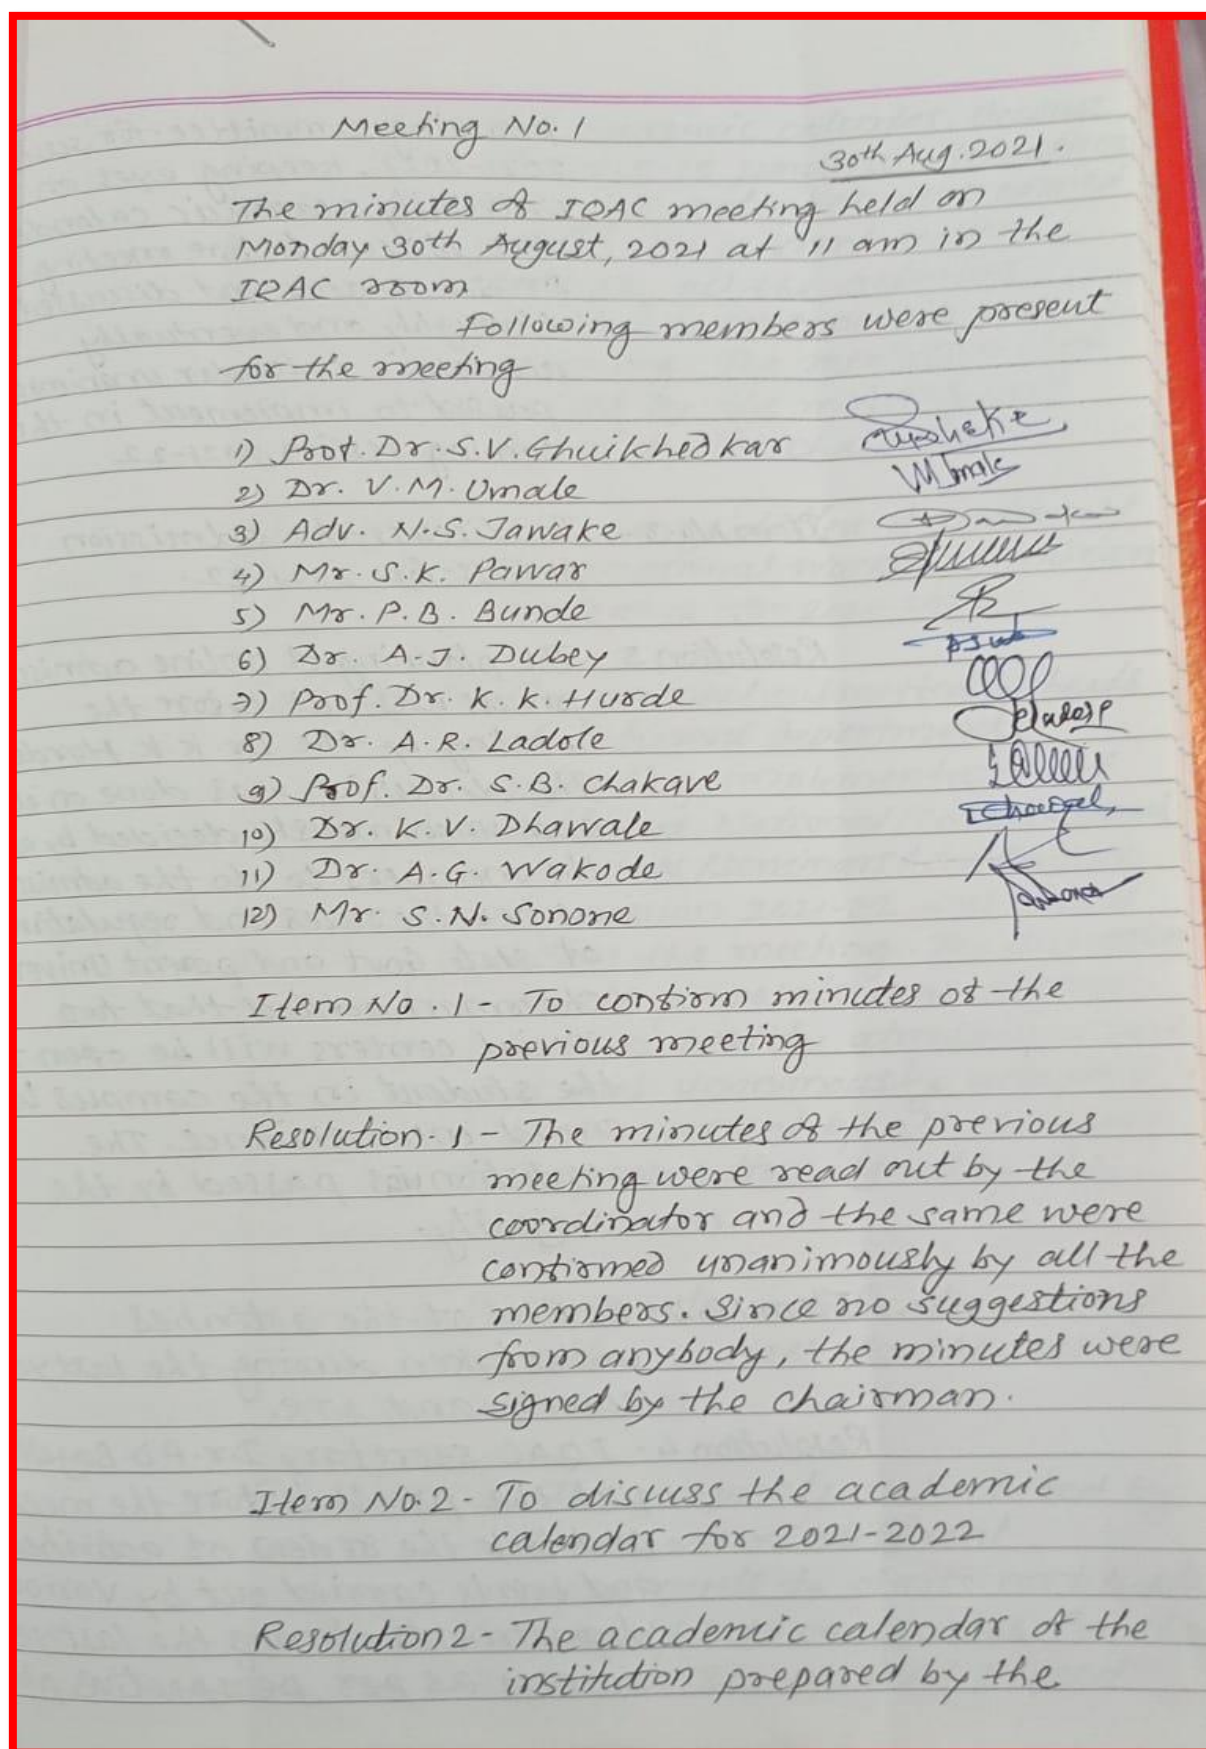 Meeting No. 1
30th Aug. 2021.
The minutes of IQAC meeting held on
Monday 30th August, 2021 at 11 am in the
IQAC room
Following members were present
for the meeting
1) Prof. Dr. S.V. Ghuikhedkar
2) Dr. V.M. Umale
3) Adv. N.S. Jawake
4) Mr. S.K. Pawar
5) Mr. P.B. Bunde
6) Dr. A.J. Dubey
7) Prof. Dr. K.K. Hurde
8) Dr. A.R. Ladole
9) Prof. Dr. S.B. Chakave
10) Dr. K.V. Dhawale
11) Dr. A.G. Wakode
12) Mr. S.N. Sonone
Item No. 1 - To confirm minutes of the
previous meeting
Resolution. 1 - The minutes of the previous
meeting were read out by the
coordinator and the same were
confirmed unanimously by all the
members. Since no suggestions
from anybody, the minutes were
signed by the chairman.
Item No. 2 - To discuss the academic
calendar for 2021-2022
Resolution 2 - The academic calendar of the
institution prepared by the